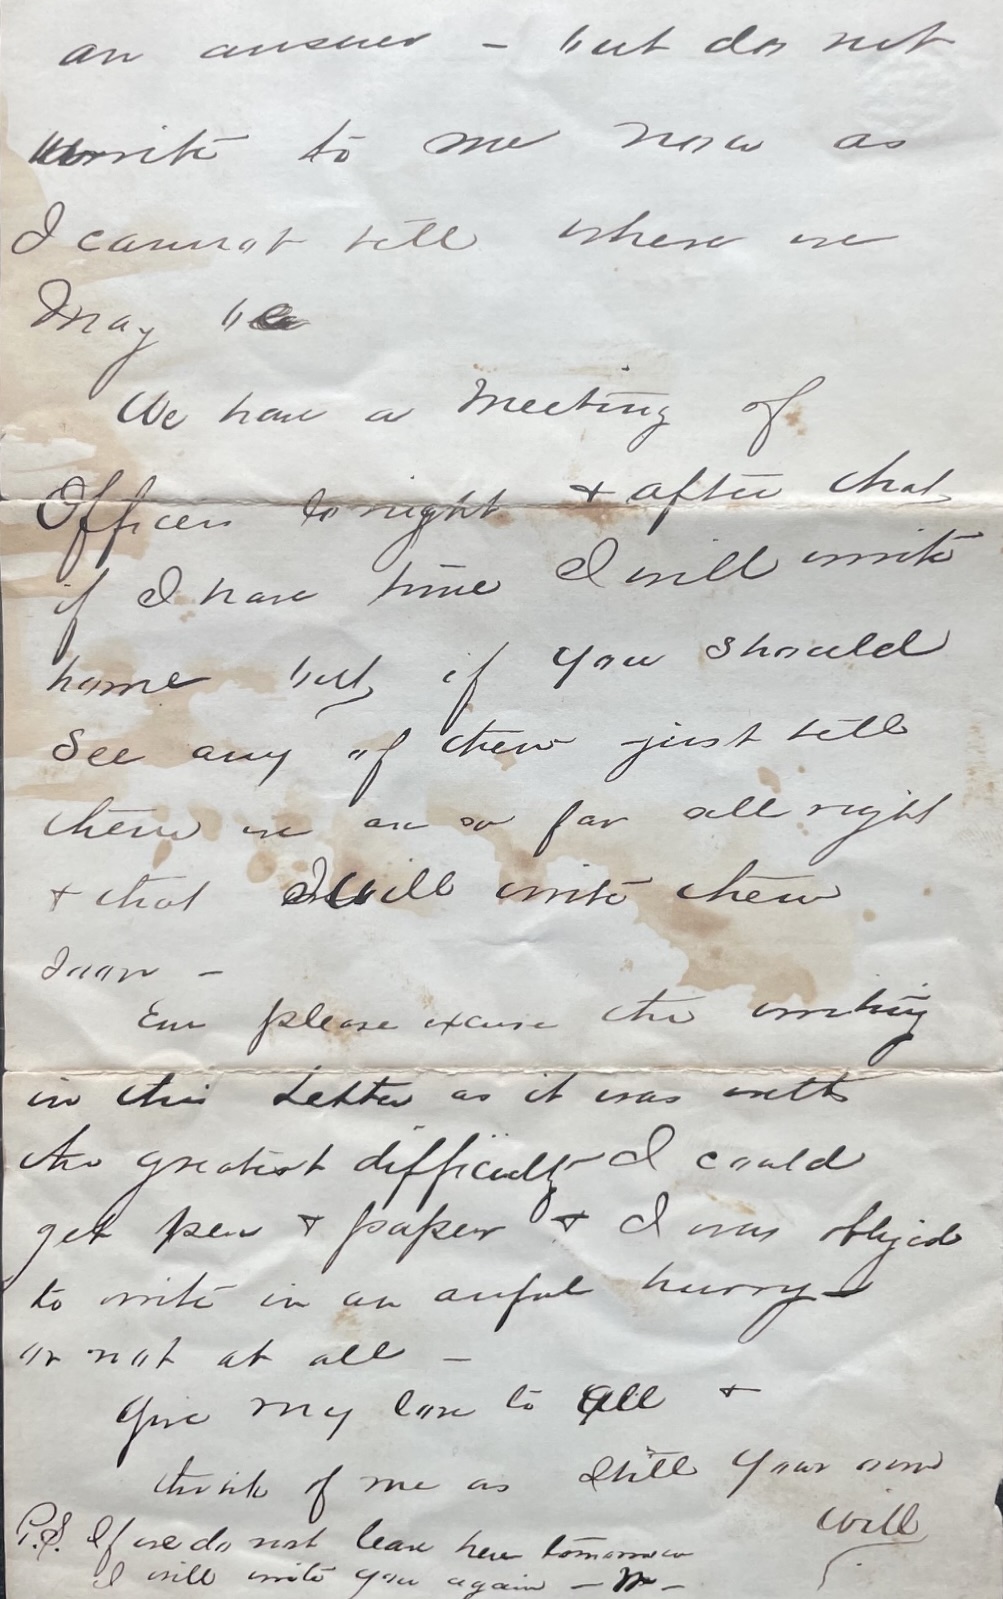 an answer - but do not
write to me now as
I cannot tell where we
May be
We have a Meeting of
Officers to night & after that
if I have time I will write
home but if you should
See any of them just tell
them we are so far all right
& that I will write them
Soon -
Em please excuse the writing
in this Letter as it was with
the greatest difficulty I could
get pen & paper & I was obliged
to write in an awful hurry -
or not at all -
Give my love to all &
think of me as Still Your own
Will
P.S. If we do not leave here tomorrow
I will write you again - W -